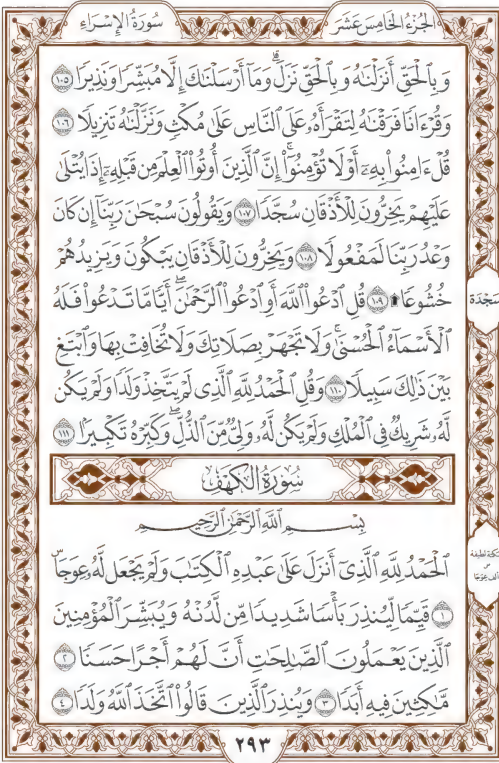 الجزء الخامس عشر
سورة الإسراء
وَبِالْحَقِّ أَنزَلْنَٰهُ وَبِالْحَقِّ نَزَلَ ۗ وَمَآ أَرْسَلْنَٰكَ إِلَّا مُبَشِّرًا وَنَذِيرًا ١٠٥
وَقُرْءَانًا فَرَقْنَٰهُ لِتَقْرَأَهُۥ عَلَى ٱلنَّاسِ عَلَىٰ مُكْثٍ وَنَزَّلْنَٰهُ تَنزِيلًا ١٠٦
قُلْ ءَامِنُوا۟ بِهِۦٓ أَوْ لَا تُؤْمِنُوٓا۟ ۚ إِنَّ ٱلَّذِينَ أُوتُوا۟ ٱلْعِلْمَ مِن قَبْلِهِۦٓ إِذَا يُتْلَىٰ
عَلَيْهِمْ يَخِرُّونَ لِلْأَذْقَانِ سُجَّدًا ١٠٧ وَيَقُولُونَ سُبْحَٰنَ رَبِّنَآ إِن كَانَ
وَعْدُ رَبِّنَا لَمَفْعُولًا ١٠٨ وَيَخِرُّونَ لِلْأَذْقَانِ يَبْكُونَ وَيَزِيدُهُمْ
خُشُوعًا ۩ ١٠٩ قُلِ ٱدْعُوا۟ ٱللَّهَ أَوِ ٱدْعُوا۟ ٱلرَّحْمَٰنَ ۖ أَيًّا مَّا تَدْعُوا۟ فَلَهُ
سجدة
ٱلْأَسْمَآءُ ٱلْحُسْنَىٰ ۚ وَلَا تَجْهَرْ بِصَلَاتِكَ وَلَا تُخَافِتْ بِهَا وَٱبْتَغِ
بَيْنَ ذَٰلِكَ سَبِيلًا ١١٠ وَقُلِ ٱلْحَمْدُ لِلَّهِ ٱلَّذِى لَمْ يَتَّخِذْ وَلَدًا وَلَمْ يَكُن
لَّهُۥ شَرِيكٌ فِى ٱلْمُلْكِ وَلَمْ يَكُن لَّهُۥ وَلِىٌّ مِّنَ ٱلذُّلِّ ۖ وَكَبِّرْهُ تَكْبِيرًۢا ١١١
سورة الكهف
بِسْمِ ٱللَّهِ ٱلرَّحْمَٰنِ ٱلرَّحِيمِ
ٱلْحَمْدُ لِلَّهِ ٱلَّذِىٓ أَنزَلَ عَلَىٰ عَبْدِهِ ٱلْكِتَٰبَ وَلَمْ يَجْعَل لَّهُۥ عِوَجَا ۜ
١ قَيِّمًا لِّيُنذِرَ بَأْسًا شَدِيدًا مِّن لَّدُنْهُ وَيُبَشِّرَ ٱلْمُؤْمِنِينَ
ٱلَّذِينَ يَعْمَلُونَ ٱلصَّٰلِحَٰتِ أَنَّ لَهُمْ أَجْرًا حَسَنًا ٢
مَّٰكِثِينَ فِيهِ أَبَدًا ٣ وَيُنذِرَ ٱلَّذِينَ قَالُوا۟ ٱتَّخَذَ ٱللَّهُ وَلَدًا ٤
٢٩٣